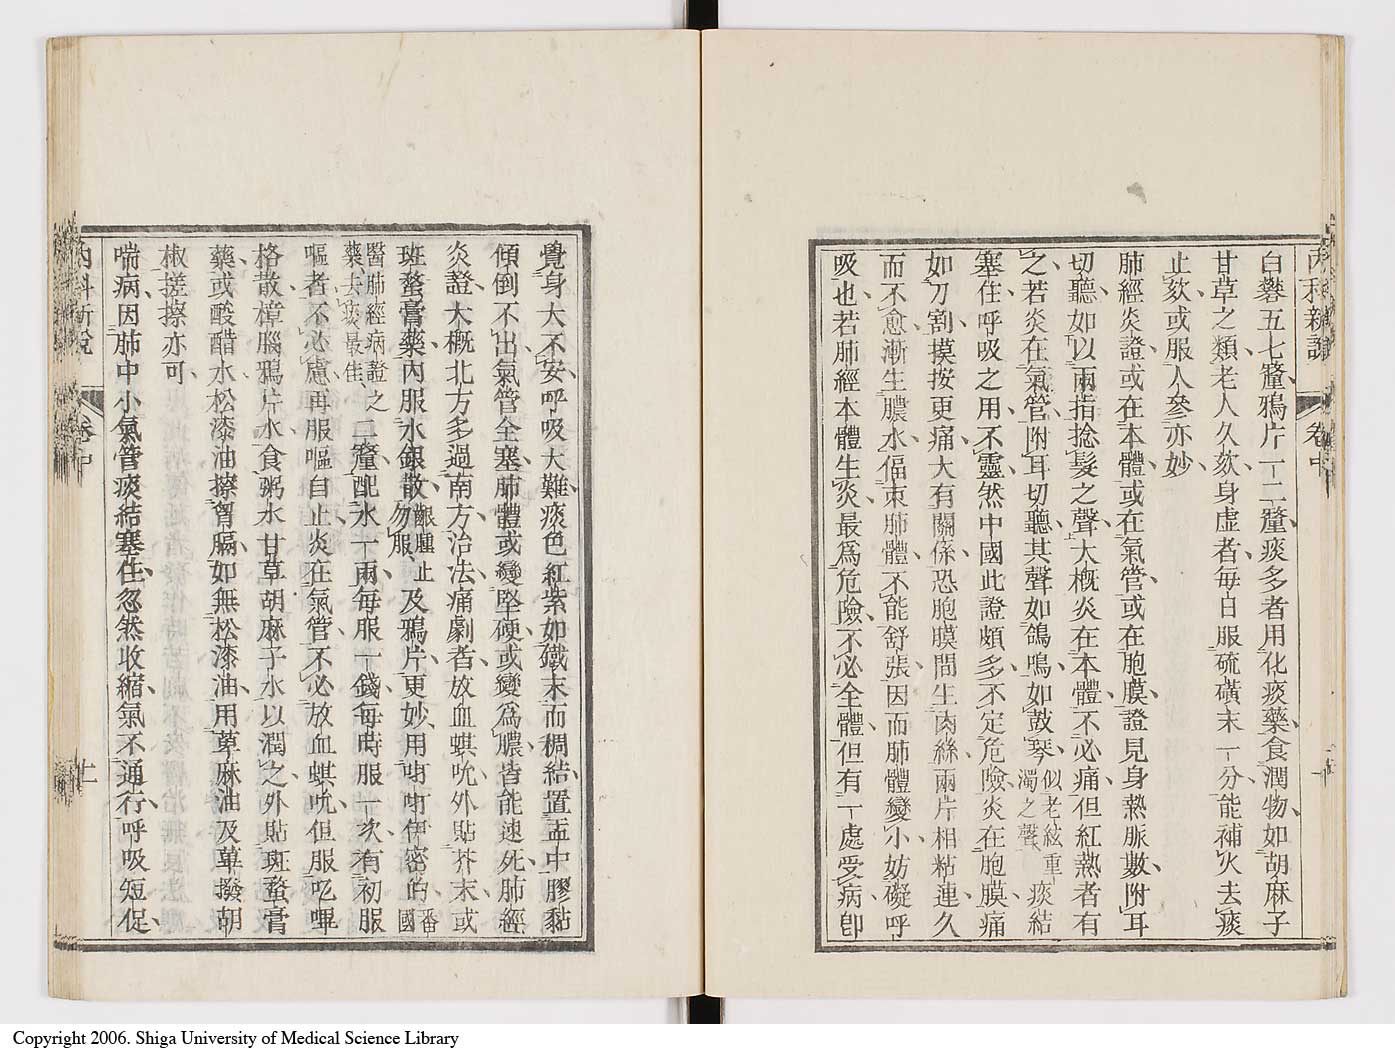 內科新說 卷中
白礬五七釐鴉片一二釐痰多者用化痰藥食潤物如胡麻子
甘草之類老人久欬身虛者每日服硫磺末一分能補火去痰
止欬或服人參亦妙
肺經炎證或在本體或在氣管或在胞膜證見身熱脈數附耳
切聽如以兩指捻髮之聲大槪炎在本體不必痛但紅熱者有
之若炎在氣管附耳切聽其聲如鴿鳴如鼓琴似老絃重濁之聲痰結
塞住呼吸之用不靈然中國此證頗多不定危險炎在胞膜痛
如刀割摸按更痛大有關係恐胞膜間生肉絲兩片相粘連久
而不愈漸生膿水偪朿肺體不能舒張因而肺體變小妨礙呼
吸也若肺經本體生炎最爲危險不必全體但有一處受病卽
覺身大不安呼吸大難痰色紅紫如鐵末而稠結置盂中膠黏
傾倒不出氣管全塞肺體或變堅硬或變爲膿皆能速死肺經
炎證大槪北方多過南方治法痛劇者放血蜞吮外貼芥末或
班蝥膏藥內服水銀散齦腫止勿服及鴉片更妙用吽吽伊密的番國
醫肺經病證之藥去痰最佳二釐配水一兩每服一錢每時服一次有初服
嘔者不必慮再服嘔自止炎在氣管不必放血蜞吮但服吃嗶
格散樟腦鴉片水食粥水甘草胡麻子水以潤之外貼班蝥膏
藥或酸醋水松漆油擦胷膈如無松漆油用草麻油及蓽撥胡
椒搓擦亦可
喘病因肺中小氣管痰結塞住忽然收縮氣不通行呼吸短促
內科新說 卷中
Copyright 2006. Shiga University of Medical Science Library